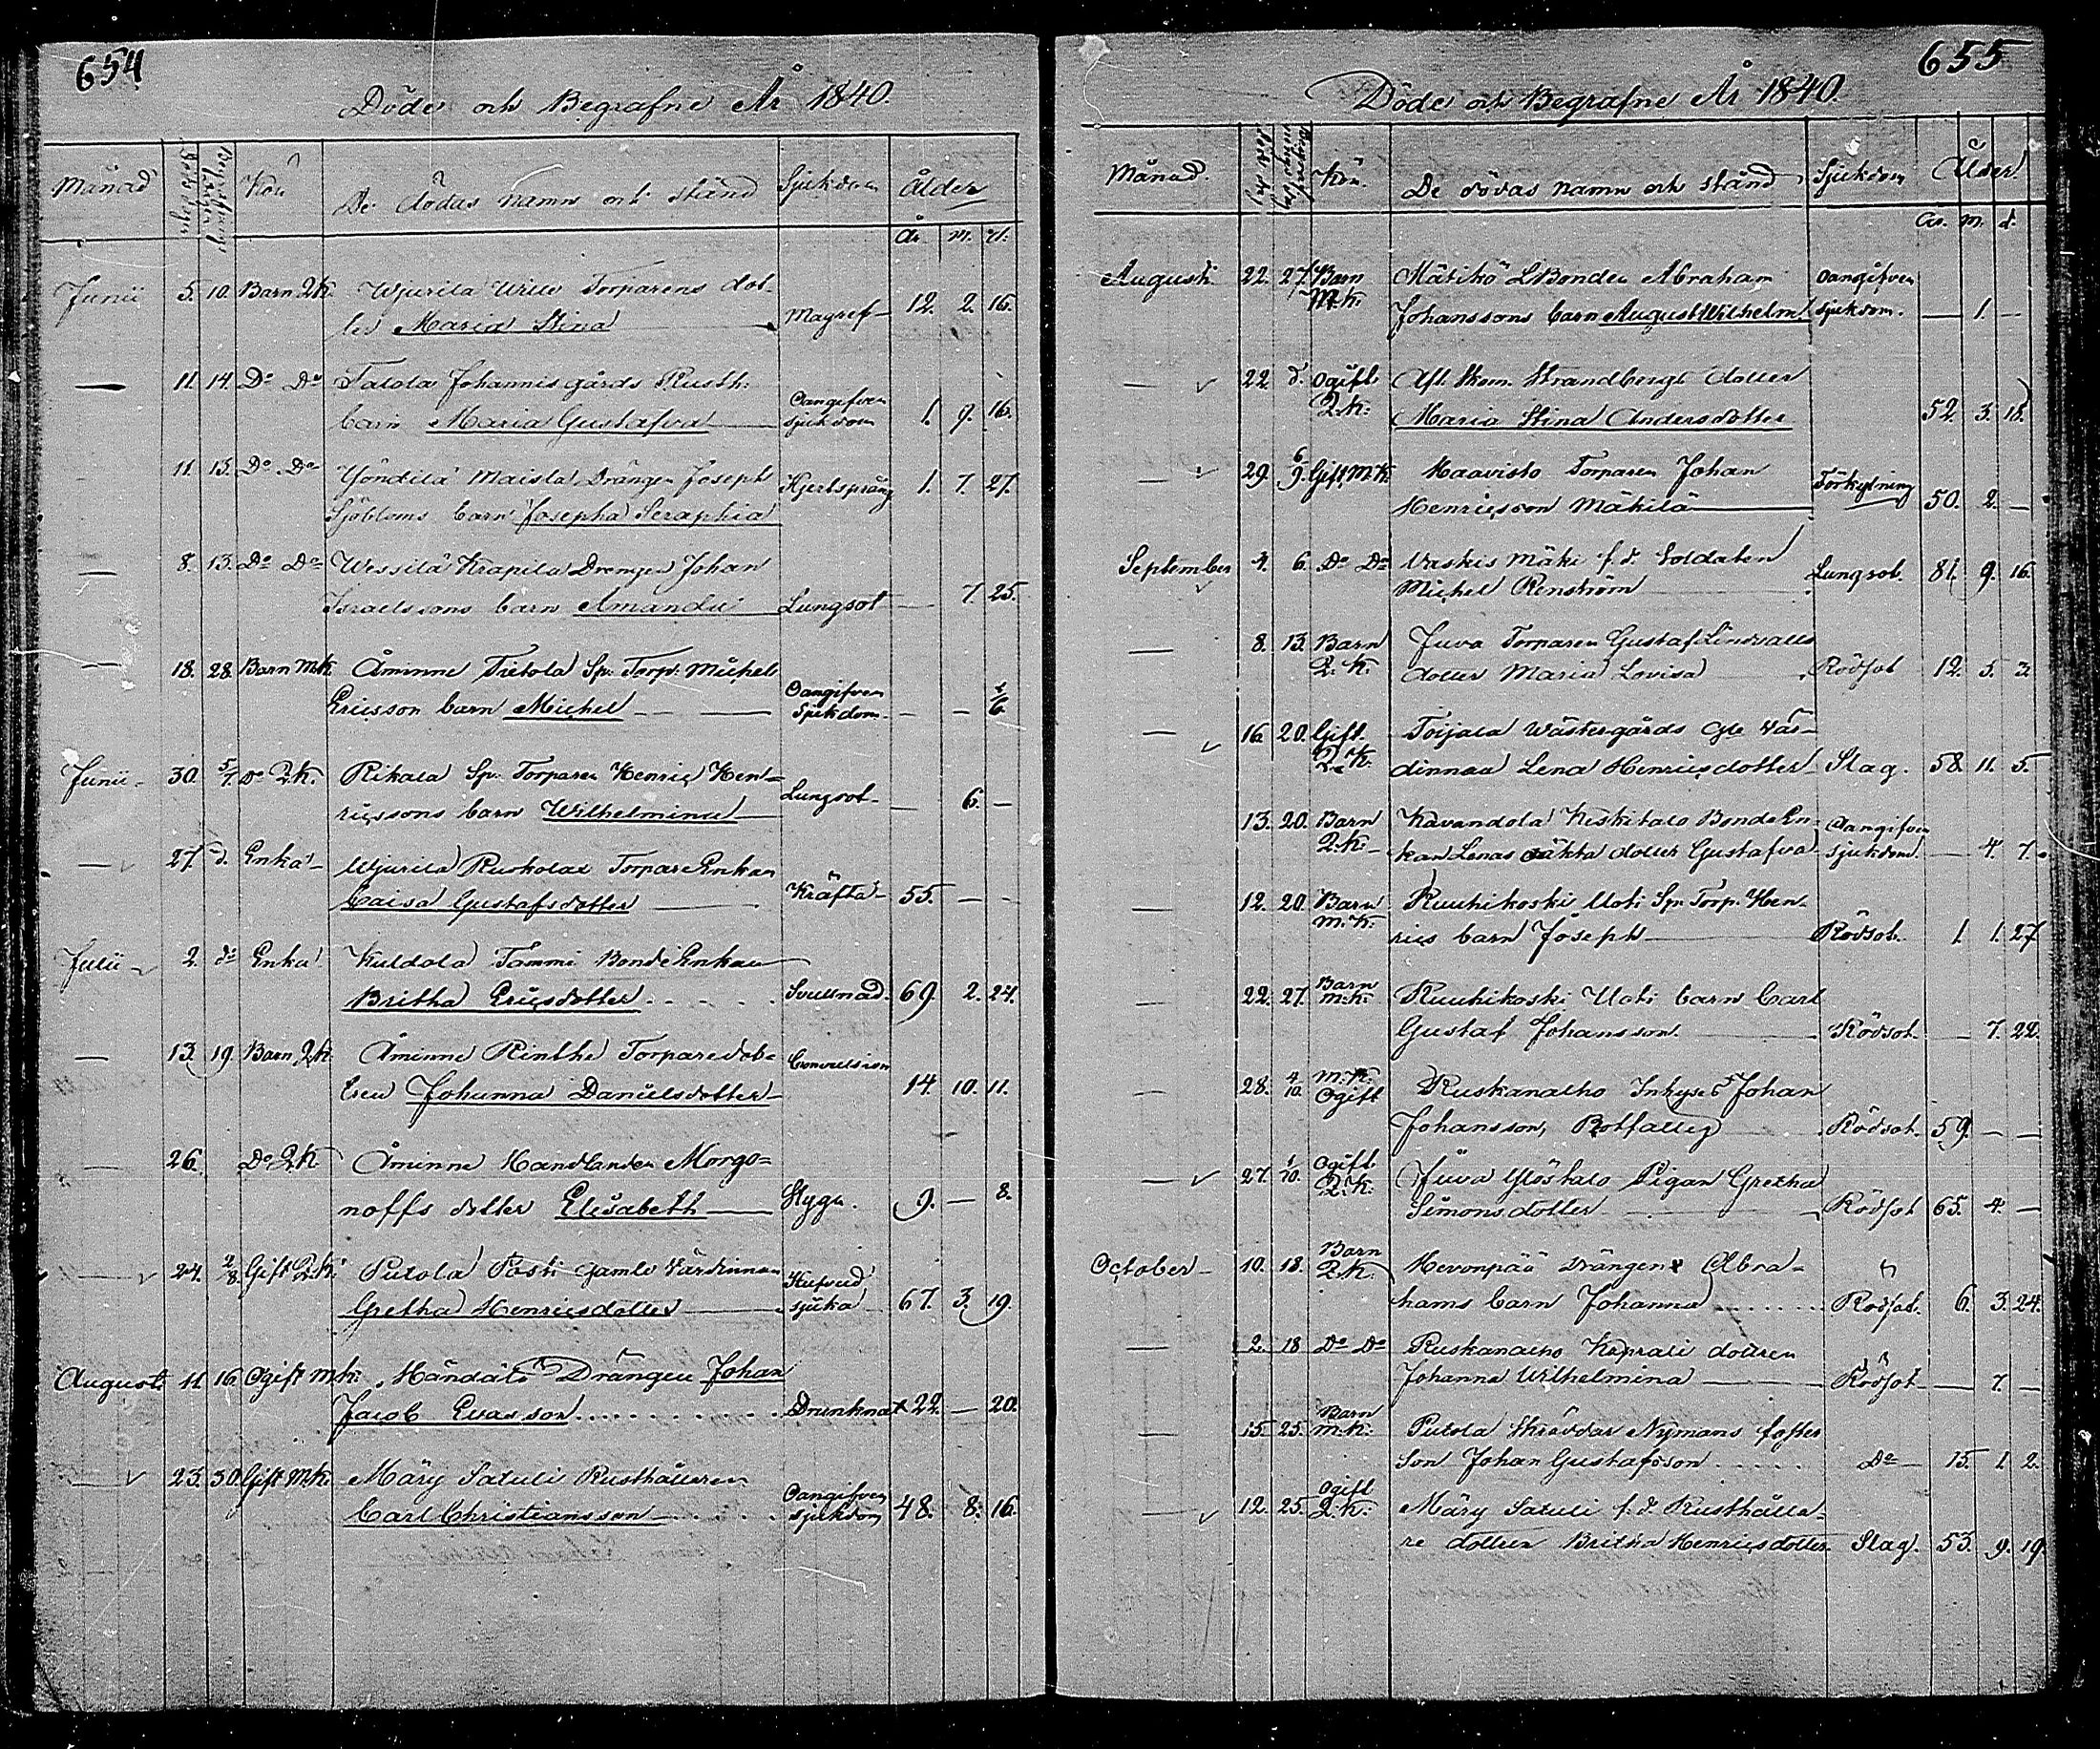 654
Döde och Begrafne År 1840.
Månad Kön De dödas namn och stånd Sjukdom Ålder
år. m. d.
Junii 5. 10. Barn Q.K. Wjurila Torparens dot-
ter Maria Stina Magref 12. 2. 16.
— 11. 14. Do Do Talola Johannis gårds Rusth.
barn Maria Gustafva Oangifven sjukdom 1. 9. 16.
11. 13. Do Do Yöndilä Maisla Drängen Joseph
Sjöbloms barn Josepha Seraphia Hjertspräng 1. 7. 27.
— 8. 13. Do Do Wessilä Krapila Drengen Johan
Israelssons barn Amanda Lungsot — 7. 25.
— 18. 28. Barn M.K. Åminne Tietola Sp. Torp. Michels
Ericsson barn Michel Oangifven Sjukdom — — 1/6
Junii 30. 5/7. Do Q.K. Rikala Sp. Torparen Henric Hen-
ricssons barn Wilhelmina Lungsot — 6. —
— 27. d. Enka Wjurila Ruokolax Torpare Enkan
Caisa Gustafsdotter Kräfta 55. — —
Julii 2. do Enka Kuldola Tammi Bonde Enkan
Britha Ericsdotter Svullnad 69. 2. 24.
— 13. 19. Barn Q.K. Åminne Rinthe Torpare dot-
tren Johanna Danielsdotter Convulsion 14. 10. 11.
— 26. Do Q.K. Åminne Handlanden Morgo-
noffs dotter Elisabeth Stygn. 9. — 8.
— 24. 2/8. Gift Q.K. Putola Pasti gamle Värdinnan
Gretha Henricsdotter Hufvud sjuka 67. 3. 19.
Augusti 11. 16. Ogift M.K. Händälä Drängen Johan
Jacob Evasson Drunknat 22. — 20.
— 23. 30. Gift M.K. Märy Satuli Rusthållaren
Carl Christiansson Oangifven sjukdom 48. 8. 16.
655
Döde och Begrafne År 1840.
Månad. Kön. De dödas namn och stånd Sjukdom Ålder
år. m. d.
Augusti 22. 27. Barn M.K. Mätikö Bonden Abraham
Johanssons barn August Wilhelm Oangifven sjukdom. — 1. —
— 22. d. Ogift Q.K. Afl. Skom. Strandbergs dotter
Maria Stina Andersdotter 52. 3. 18.
— 29. 6/9. Gift M.K. Haavisto Torparen Johan
Henricsson Mäkilä Förkylning 50. 2. —
September 4. 6. Do Do Vaskis mäki f.d. Soldaten
Michel Renström Lungsot. 81. 9. 16.
— 8. 13. Barn Q.K. Juva Torparen Gustaf Lindvalls
dotter Maria Lovisa Rödsot 12. 5. 3.
— 16. 20. Gift. Q.K. Toijala Wästergårds gle Vär-
dinnan Lena Henricsdotter Slag. 58. 11. 5.
13. 20. Barn Q.K. Kavandola Keskitalo Bonde En-
kan Lenas oäkta dotter Gustafva Oangifven sjukdom. — 4. 7.
— 12. 20. Barn M.K. Ruuhikoski Uoti Sp. Torp. Hen-
rics barn Joseph Rödsot. 1. 1. 27.
— 22. 27. Barn M.K. Ruuhikoski Uoti barn Carl
Gustaf Johansson. Rödsot. — 7. 22.
— 28. 4/10. M.K. Ogift Ruskanalho Inhyses Johan
Johansson, Rotfallig Rödsot. 59. — —
— 27. 4/10. Ogift. Q.K. Juva Ylöstalo Pigan Gretha
Simonsdotter Rödsot 65. 4. —
October 10. 18. Barn Q.K. Hevonpää drängen Abra-
hams barn Johanna Rödsot. 6. 3. 24.
— 2. 18 Do Do Ruskanalho Koprali dottren
Johanna Wilhelmina Rödsot — 7. —
— 15. 25. Barn M.K. Putola Skräddar Nymans foster
son Johan Gustafsson Do 15. 1. 2.
— 12. 25. Ogift Q.K. Märy Satuli f.d. Rusthålla-
re dottren Britha Henricsdotter Slag. 53. 9. 19